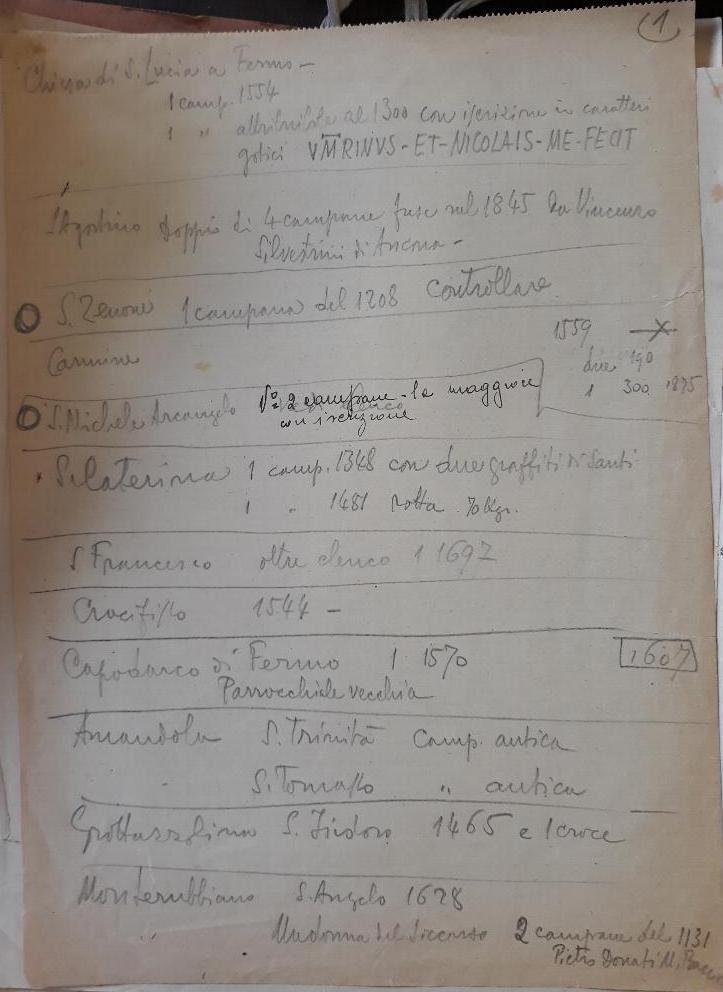 1
Chiesa di S. Lucia a Fermo -
1 camp. 1554
1 " attribuibile al 1300 con iscrizione in caratteri
gotici VMRINVS-ET-NICOLAIS-ME-FECIT
S Agostino doppio di 4 campane fuse nel 1845 da Vincenzo
Silvestrini di Ancona -
S. Zenone 1 campana del 1208 controllare
1559
Carmine due 190
1 300 1875
S. Michele Arcangelo N° 2 campane - la maggiore
con iscrizione
S. Caterina 1 camp. 1348 con due graffiti di Santi
1 " 1481 rotta 70 Kgr.
S Francesco oltre elenco 1 1697
Crocifisso 1544 -
Capodarco di Fermo 1 1570 1607
Parrocchiale vecchia
Amandola S. Trinità Camp. antica
S. Tomasso " antica
Grottazzolina S. Isidoro 1465 e 1 croce
Monterubbiano S. Angelo 1628
" Madonna del Soccorso 2 campane del 1131
Pietro Donati M.